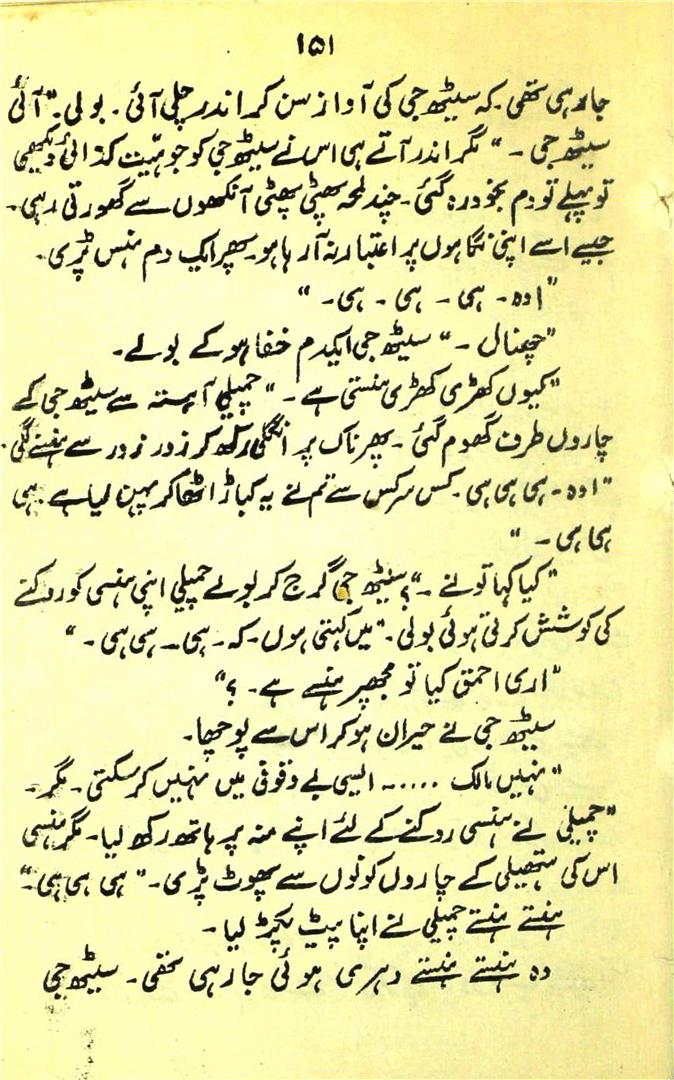 ۱۵۱
جا رہی تھی۔ کہ سیٹھ جی کی آواز سن کر اندر چلی آئی۔ بولی۔ "آئی
سیٹھ جی۔" مگر اندر آتے ہی اس نے سیٹھ جی کو جو ہیّت کذائی دیکھی
تو پہلے تو دم بخود رہ گئی۔ چند لمحہ پھٹی پھٹی آنکھوں سے گھورتی رہی۔
جیسے اسے اپنی نگاہوں پر اعتبار نہ آ رہا ہو۔ پھر ایک دم ہنس پڑی۔
"اوہ۔ ہی۔ ہی۔ ہی۔"
"چھنال۔" سیٹھ جی ایکدم خفا ہو کے بولے۔
"کیوں کھڑی کھڑی ہنستی ہے۔" چمپیلی آہستہ سے سیٹھ جی کے
چاروں طرف گھوم گئی۔ پھر ناک پر انگلی رکھ کر زور زور سے ہنسنے لگی۔
"اوہ۔ ہی ہی ہی۔ کس سرکس سے تم نے یہ کباڑ اٹھا کر پہن لیا ہے۔ ہی
ہی ہی۔"
"کیا کہا تو نے۔"؟ سیٹھ جی گرج کر بولے چمپیلی اپنی ہنسی کو روکنے
کی کوشش کرتی ہوئی بولی۔ "میں کہتی ہوں۔ کہ۔ ہی۔ ہی ہی۔"
"اری احمق کیا تو مجھپر ہنسے ہے۔؟"
سیٹھ جی نے حیران ہو کر اس سے پوچھا۔
"نہیں مالک ..... ایسی بے وقوفی میں نہیں کر سکتی۔ مگر۔
"چمپیلی نے ہنسی روکنے کے لئے اپنے منہ پر ہاتھ رکھ لیا۔ مگر ہنسی
اس کی ہتھیلی کے چاروں کونوں سے پھوٹ پڑی۔" ہی ہی ہی۔"
ہنستے ہنستے چمپیلی نے اپنا پیٹ پکڑ لیا۔
وہ ہنستے ہنستے دہری ہوئی جا رہی تھی۔ سیٹھ جی